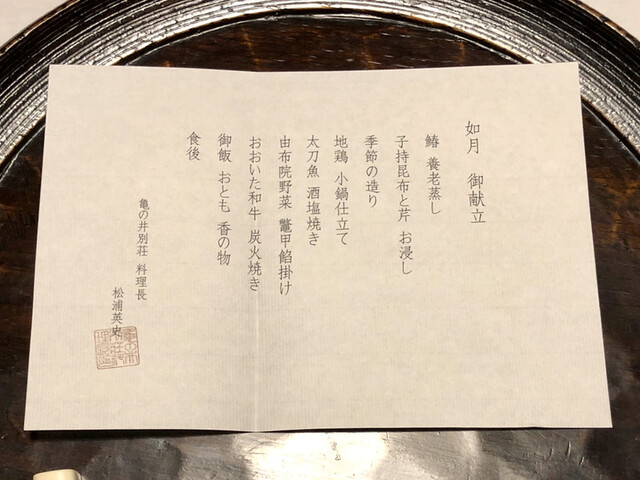 如月 御献立
鰆 養老蒸し
子持昆布と芹 お浸し
季節の造り
地鶏 小鍋仕立て
太刀魚 酒塩焼き
由布院野菜 鼈甲餡掛け
おおいた和牛 炭火焼き
御飯 おとも 香の物
食後
亀の井別荘 料理長
松浦英史